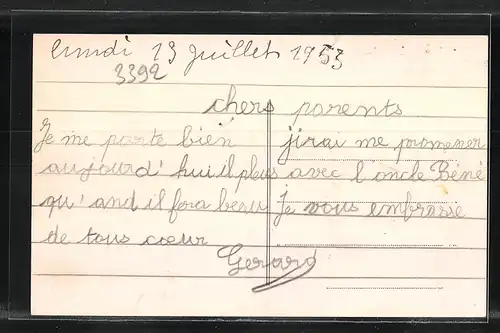 lundi 13 juillet 1953
3392
chers parents
Je me porte bien jirai me promener
aujourd'hui il pleus avec l oncle René
qu'and il fera beau Je vous embrasse
de tous cœur
Gerard